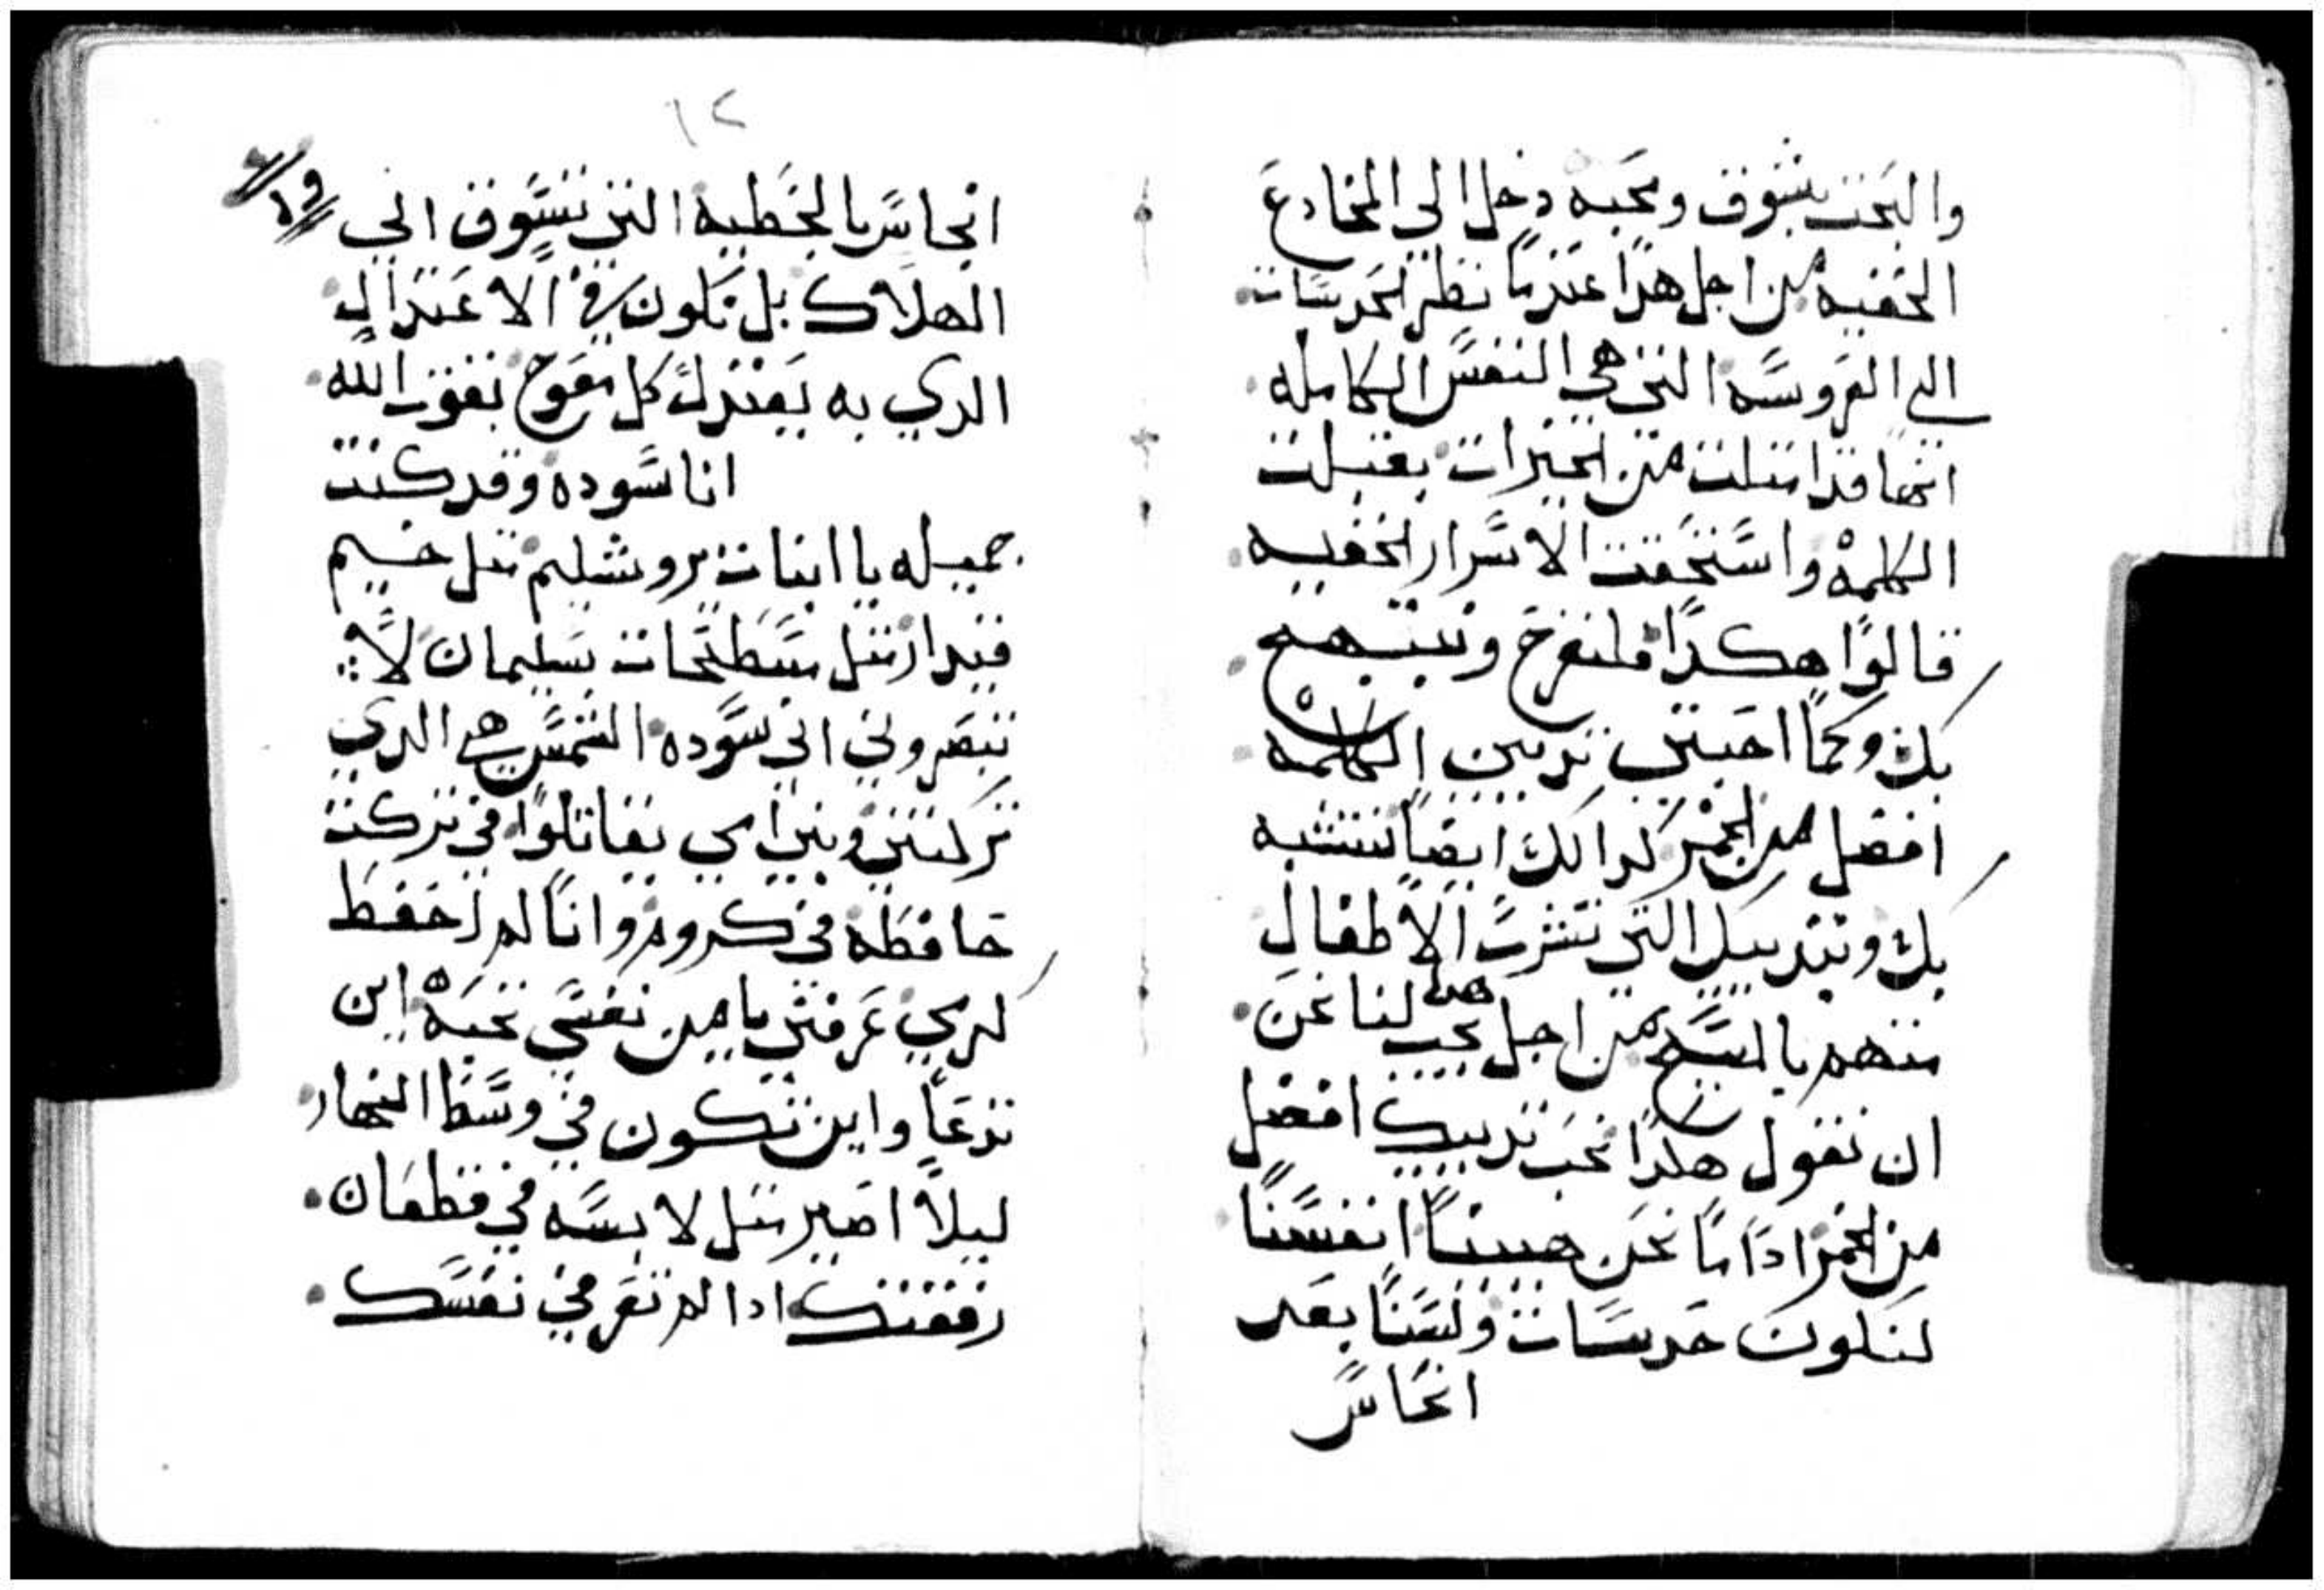 والبحت بشوق ومحبه دخل الي المخادع
الخفيه من اجل هدا عندما نظر الحدسات
الي العروسه التي هي النفس الكامله
انها قد امتلت من الخيرات بقبلت
الكلمه واستحقت الاسرار الخفيه
قالوا هكدا فلنفرح ونبتهج
بك وكما احببتي تديين الكلمه
افضل من الخمر كدالك ايضا نتشبه
بك وبتدييك التي تشرب الاطفال
منهم بالمسيح من اجل هدا يجب لنا نحن
ان نقول هكدا نحب تدييك افضل
من الخمر ادا ما نحن هيينا انفسنا
لنكون حدسات ولسنا بعد
انجاس
١٢
انجاس بالخطيه التي تسوق الي
الهلاك بل نكون في الاعتدال
الدي به يعتدل كل معوج بقوت الله
انا سوده وقد كنت
جميله يا ابنات يروشليم متل خيم
قيدار متل سطحات سليمان لا
تبصروني اني سوده الشمس هي الدي
تركتني وبني امي تقاتلوا في تركت
حافظه في كروم وانا لم احفظ
كرمي عرفني يا من نفسي تحبه اين
ترعا واين تكون في وسط النهار
ليلا اصير متل لابسه في قطعان
رفقتك ادا لم تعرفي نفسك